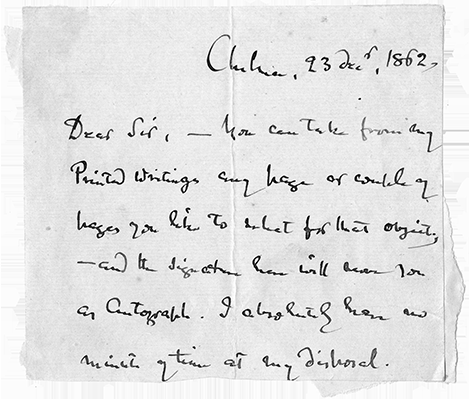 Chelsea, 23 decr, 1862,
Dear Sir, — You can take from my
Printed writings any page or couple of
pages you like to for that object;
—and the signature here will serve you
as Autograph. I absolutely have no
minute of time at my disposal.